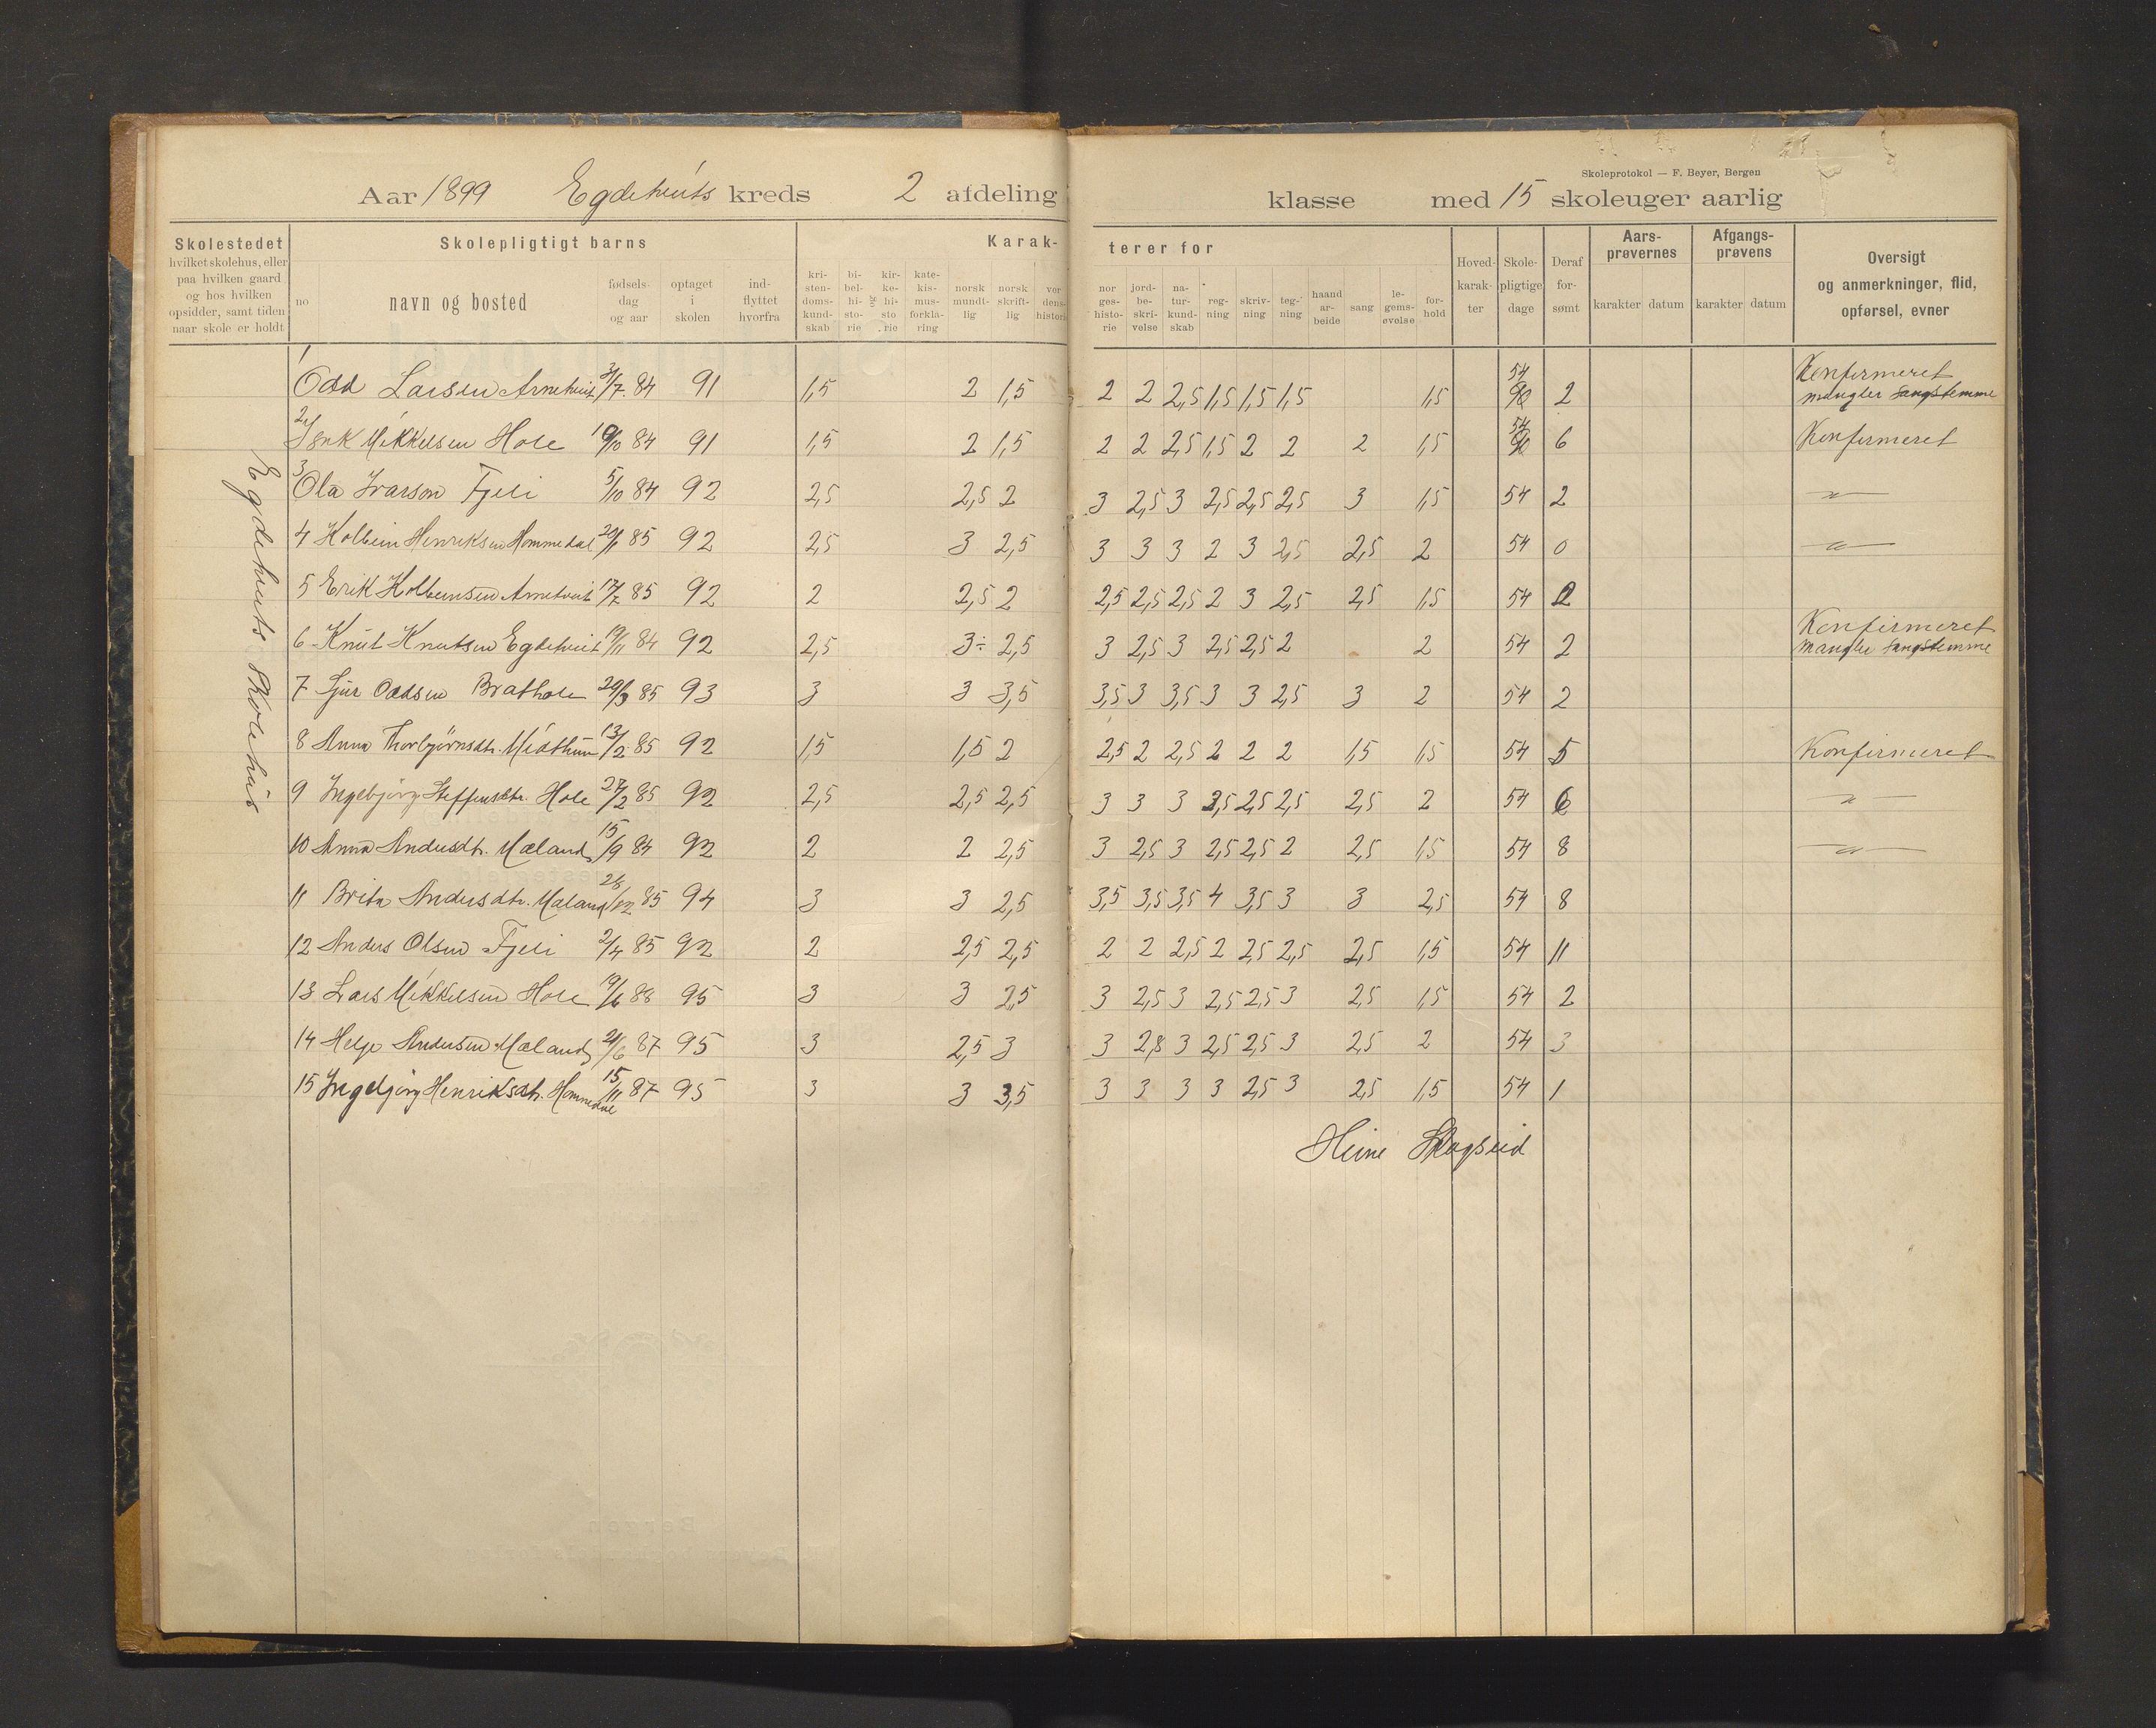 Skoleprotokol — F. Beyer, Bergen
Aar 1899 Egdetveits kreds 2 afdeling klasse med 15 skoleuger aarlig
Skolestedet
hvilket skolehus, eller
paa hvilken gaard
og hos hvilken
opsidder, samt tiden
naar skole er holdt
Skolepligtigt barns
no
navn og bosted
fødsels-
dag
og aar
optaget
i
skolen
ind-
flyttet
hvorfra
Karak-
terer for
kri-
sten-
doms-
kund-
skab
bi-
bel-
hi-
sto-
rie
kir-
ke-
hi-
sto
rie
kate-
kis-
mus-
forkla-
ring
norsk
mundt-
lig
norsk
skrift-
lig
ver
dens-
histori
nor
ges-
histo-
rie
jord-
be-
skri-
velse
na-
tur-
kund-
skab
reg-
ning
skriv-
ning
teg-
ning
haand
ar-
beide
sang
le-
gems-
øvelse
for-
hold
Hoved-
karak-
ter
Skole-
pligtige
dage
Deraf
for-
sømt
Aars-
prøvernes
karakter datum
Afgangs-
prøvens
karakter datum
Oversigt
og anmerkninger, flid,
opførsel, evner
Egdetveits Skolehus
1 Odd Larsen Arnetveit 31/7 84 91 1,5 2 1,5 2 2 2,5 1,5 1,5 1,5 1,5 54 2 Konfirmeret
mangler sangstemme
2 Mikkelsen Hole 10/10 84 91 1,5 2 1,5 2 2 2,5 1,5 2 2 2 1,5 54 6 Konfirmeret
3 Ola Ivarson Fjeli 5/10 84 92 2,5 2,5 2 3 2,5 3 2,5 2,5 2,5 3 1,5 54 2 —"—
4 Kolbein Henriksen Hommedal 85 92 2,5 3 2,5 3 3 3 2 3 2,5 2,5 2 54 0 —"—
5 Erik Kolbeinsen Arnetveit 17/7 85 92 2 2,5 2 2,5 2,5 2,5 2 3 2,5 2,5 1,5 54 2
6 Knut Knutsen Egdetveit 19/11 84 92 2,5 3÷ 2,5 3 2,5 3 2,5 2,5 2 2 54 2 Konfirmeret
mangler sangstemme
7 Sjur Oddsen Brathole 29/3 85 93 3 3 3,5 3,5 3 3,5 3 3 2,5 3 2 54 2
8 Anna Thorbjörnsdtr. Midthun 13/2 85 92 1,5 1,5 2 2,5 2 2,5 2 2 2 1,5 1,5 54 5 Konfirmeret
9 Ingebjörg Steffensdtr. Hole 27/2 85 92 2,5 2,5 2,5 3 3 3 2,5 2,5 2,5 2,5 2 54 6 —"—
10 Anna Andersdtr. Mæland 15/9 84 92 2 2 2,5 3 2,5 3 2,5 2,5 2 2,5 1,5 54 8 —"—
11 Brita Andersdtr. Mæland 28/12 85 94 3 3 2,5 3,5 3,5 3,5 4 3,5 3 3 2,5 54 8
12 Anders Olsen Fjeli 2/4 85 92 2 2,5 2,5 2 2 2,5 2 2,5 2,5 2,5 1,5 54 11
13 Lars Mikkelsen Hole 19/6 88 95 3 3 2,5 3 2,5 3 2,5 2,5 3 2,5 1,5 54 2
14 Helge Andersen Mæland 21/6 87 95 3 2,5 3 3 2,8 3 2,5 2,5 3 2,5 2 54 3
15 Ingebjörg Henriksdtr. Hommedal 15/11 87 95 3 3 3,5 3 3 3 3 2,5 3 2,5 1,5 54 1
Heine Skogseid